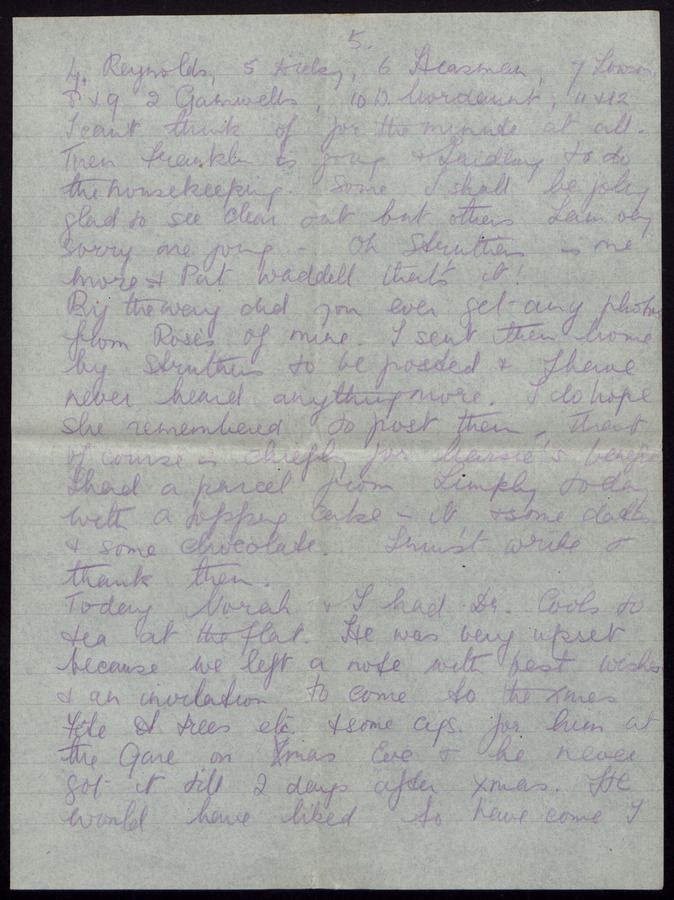 5.
4. Reynolds, 5 Dicky, 6 Heasman, 7 Lowson,
8 & 9 2 Gamwells, 10 D. Mordaunt, 11 & 12
I cant think of for the minute at all.
Then Franklin is going & Laidlay to do
the housekeeping. Some I shall be joley
glad to see clear out but others I am very
sorry are going - Oh Struthers is one
more & Pat Waddell that's it!
By the way did you ever get any photos
from Roses of mine. I sent them home
by Struthers to be posted & I have
never heard anything more. I do hope
she remembered to post them, that
of course is chiefly for 's benefit
I had a parcel from Limply today
with a topping cake - it & some dates
& some chocolate. I must write &
thank them.
Today Norah & I had Dr. Cools to
tea at the flat. He was very upset
because we left a note with best wishes
& an invitation to come to the Xmas
Fete & trees etc & some cigs. for him at
the Gare on Xmas Eve & he never
got it till 2 days after Xmas. He
would have liked to have come I